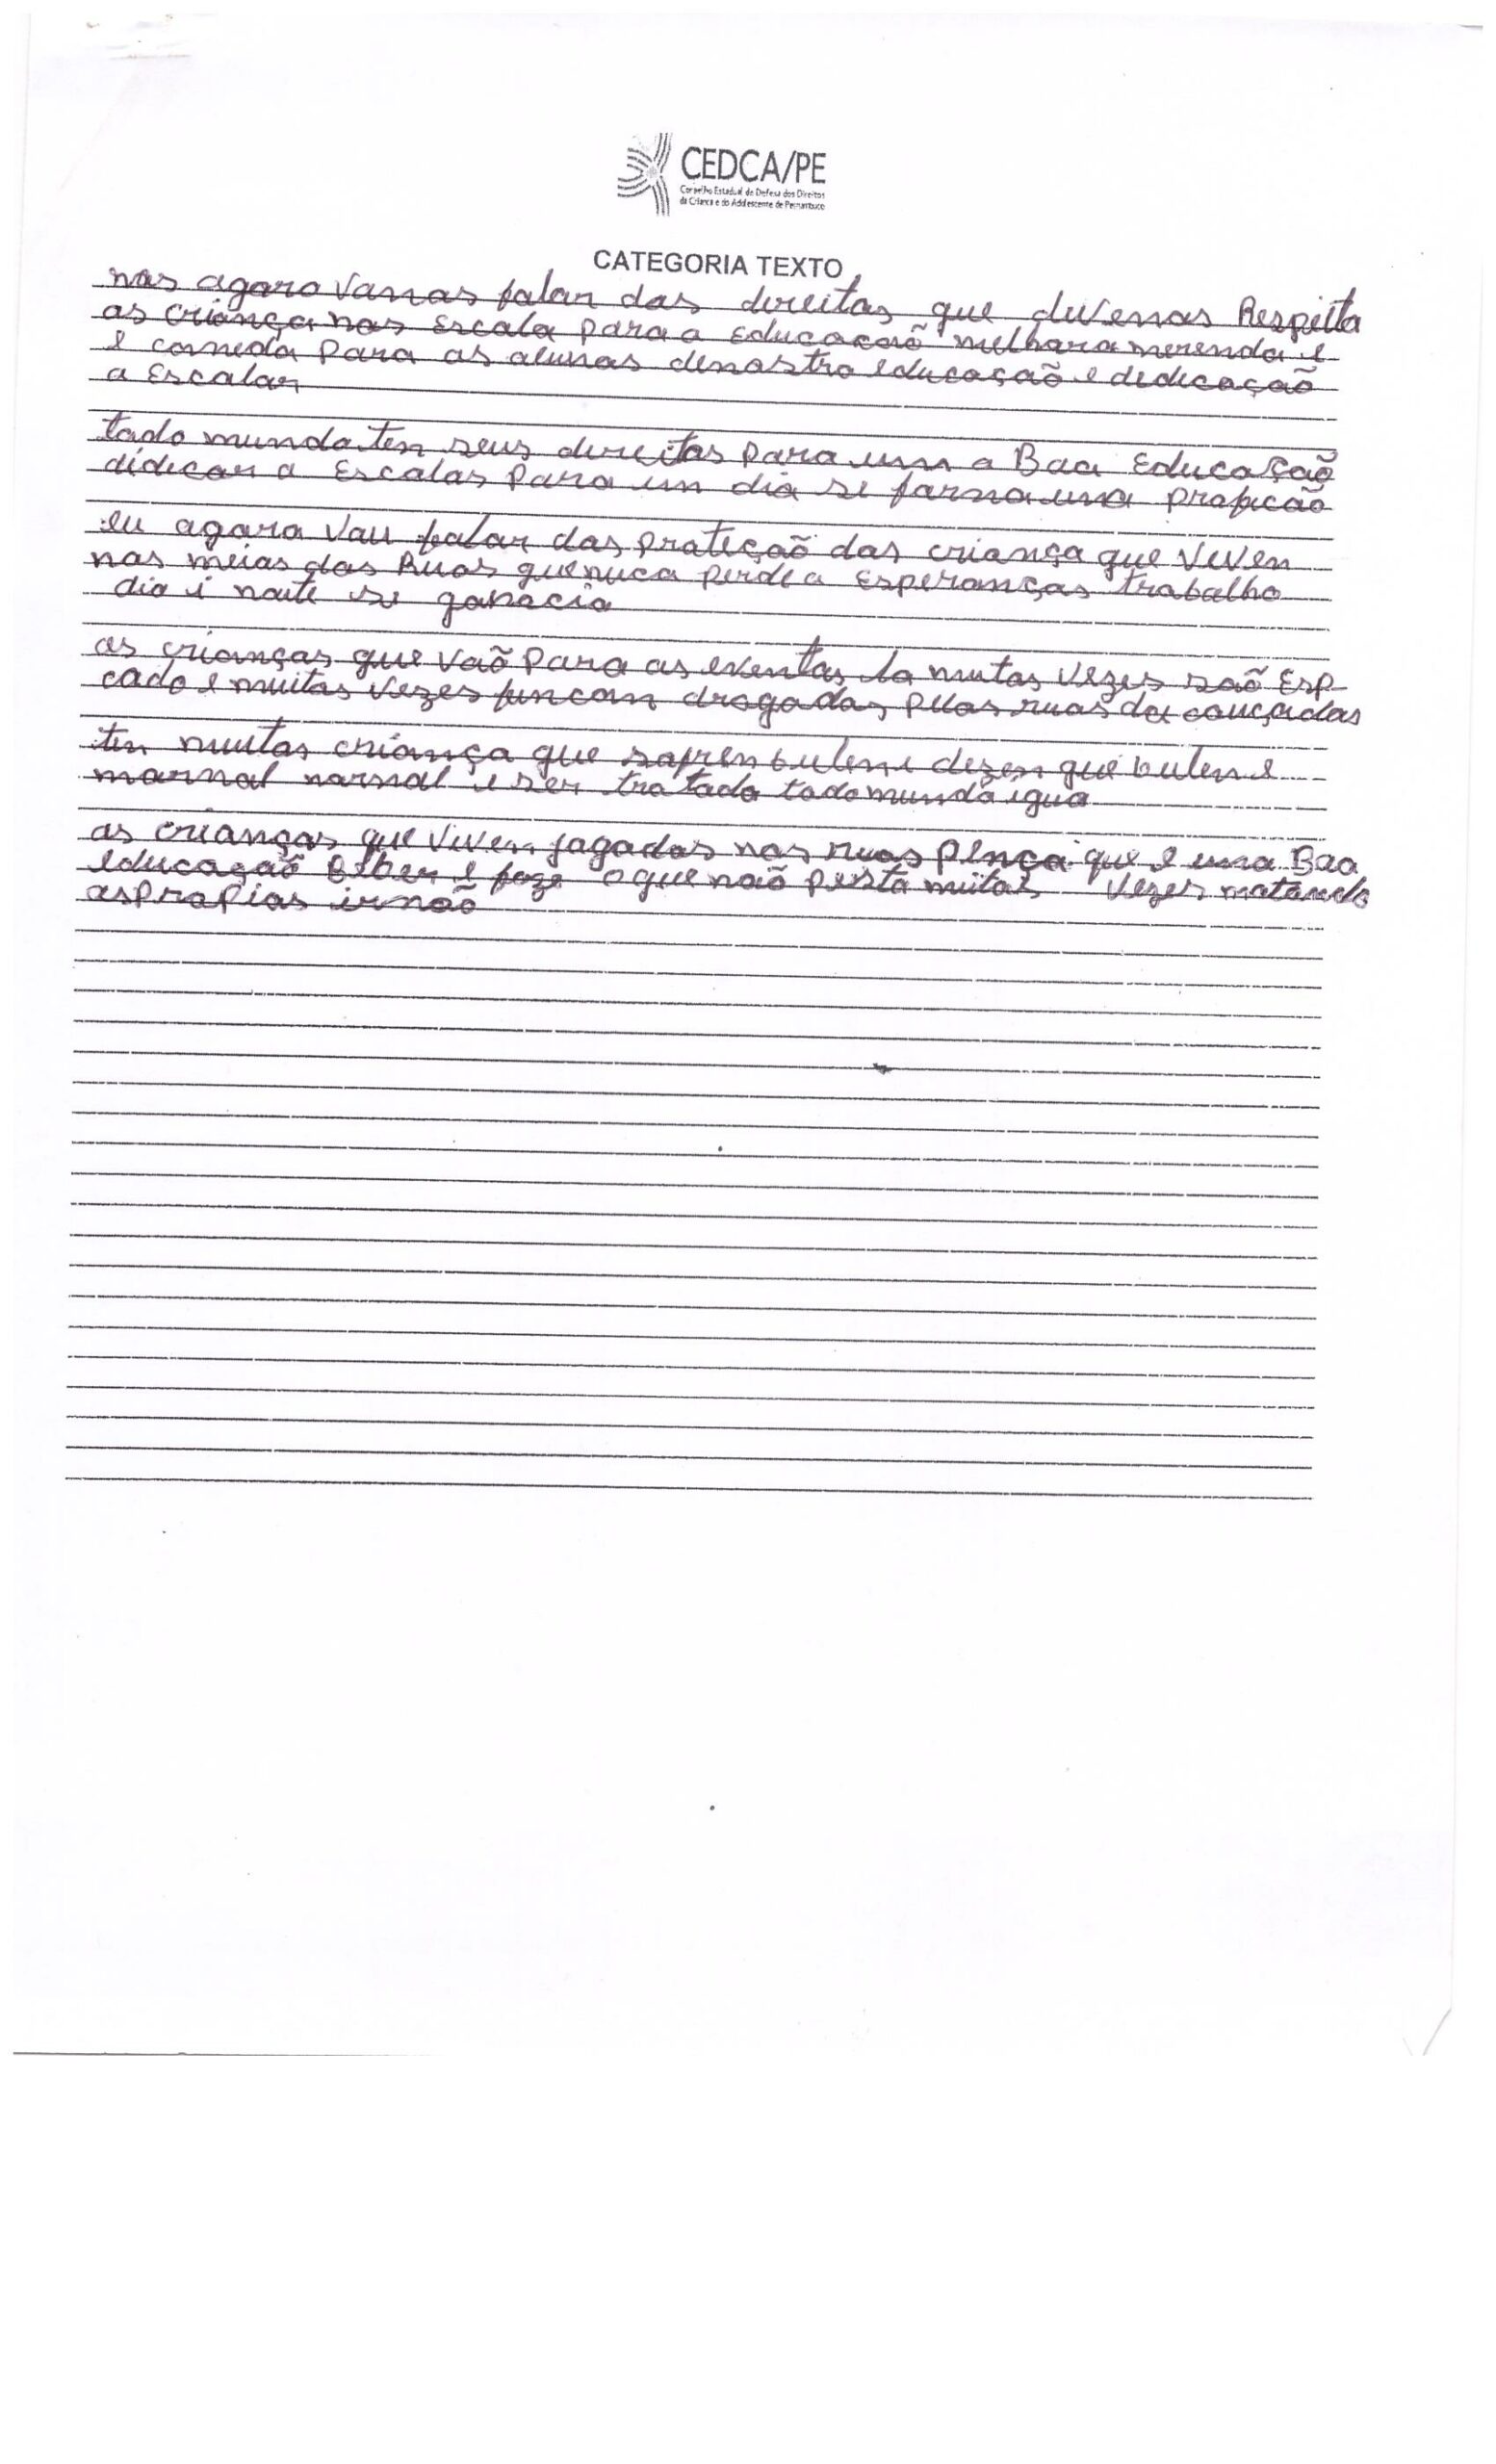 CEDCA/PE
Conselho Estadual de Defesa dos Direitos
da Criança e do Adolescente de Pernambuco
CATEGORIA TEXTO
nos agora vamos falar dos direitos que devemos Respeita
as criança nas Escola para a Educacaõ melhora merenda e
e comeda para os alunos demostra educaçaõ e dedicaçaõ
a Escolar
todo mundo tem seus direitos para um a Boa Educaçaõ
didicar a Escolas para um dia se forma uma proficão
eu agora vou falar das proteçaõ das criança que viven
nas meias das Ruas que nuca perde a Esperanças trabalho
dia i noite se ganacia
as crianças que vaõ para as eventos la mutas vezes saõ Esp-
cado e muitas vezes funcam drogadas pelas ruas da couçadas
tem muitas criança que sofren buleni dezen que bulen e
mornal normal e ser tratado todo mundo igua
as crianças que vivem jogados nas ruas pença que e uma Boa
educaçaõ Beber e faze o que naõ pesta muitas vezes matando
as propias irnaõ